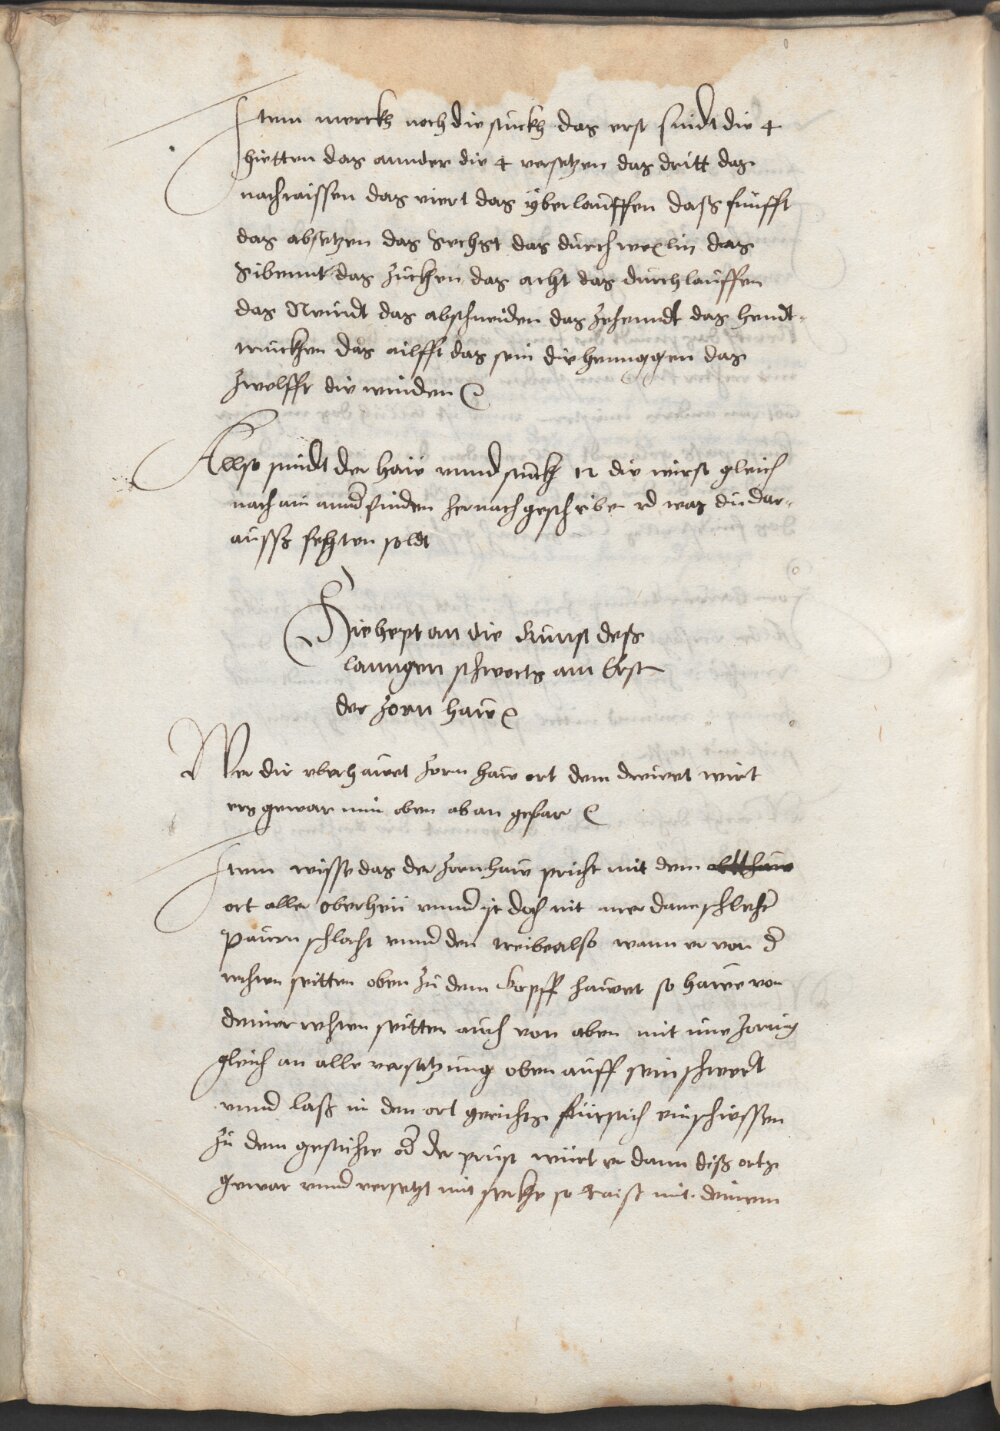 Item merckh noch die stuckh das erst sindt die 4
hietten das annder die 4 versetzen das dritt das
nachraissen das viert das yberlauffen dasß funfft
das absetzen das Sechst das durchwexlin das
Sibennt das zucken das acht das durchlauffen
das Neundt das abschneiden das zehenndt das hendt-
trucken das ailfft das sein die henngen das
zwelfft die winden
Allso sindt der haw vnnd stuckh 12 die wirst gleich
nach ain annd finden hernach geschriben vnd was du dar-
auß fechten soldt
Hie hept an die kunst deß
lanngen schwerts am Erst
der zorn haw
Wer dir vberhawet zorn haw ort dem drewet wirt
ers gewar nim oben ab an gefar
Item wisse das der zornhaw pricht mit dem
ort alle oberheü vnnd ist doch nit mer dann schlecht
paurn schlacht vnnd den treib also wann er von d
rechten seitten oben zu dem kopff hawet so hawe von
deiner rechten seitten auch von oben mit ime zornig
gleich an alle versatzung oben auff sein schwert
vnnd laß in den ort gerichts fürsich einschiessen
zu dem gesichte od der prüst würt er dann diß orts
gewar vnnd versetzt mit sterke so raist mit deinem